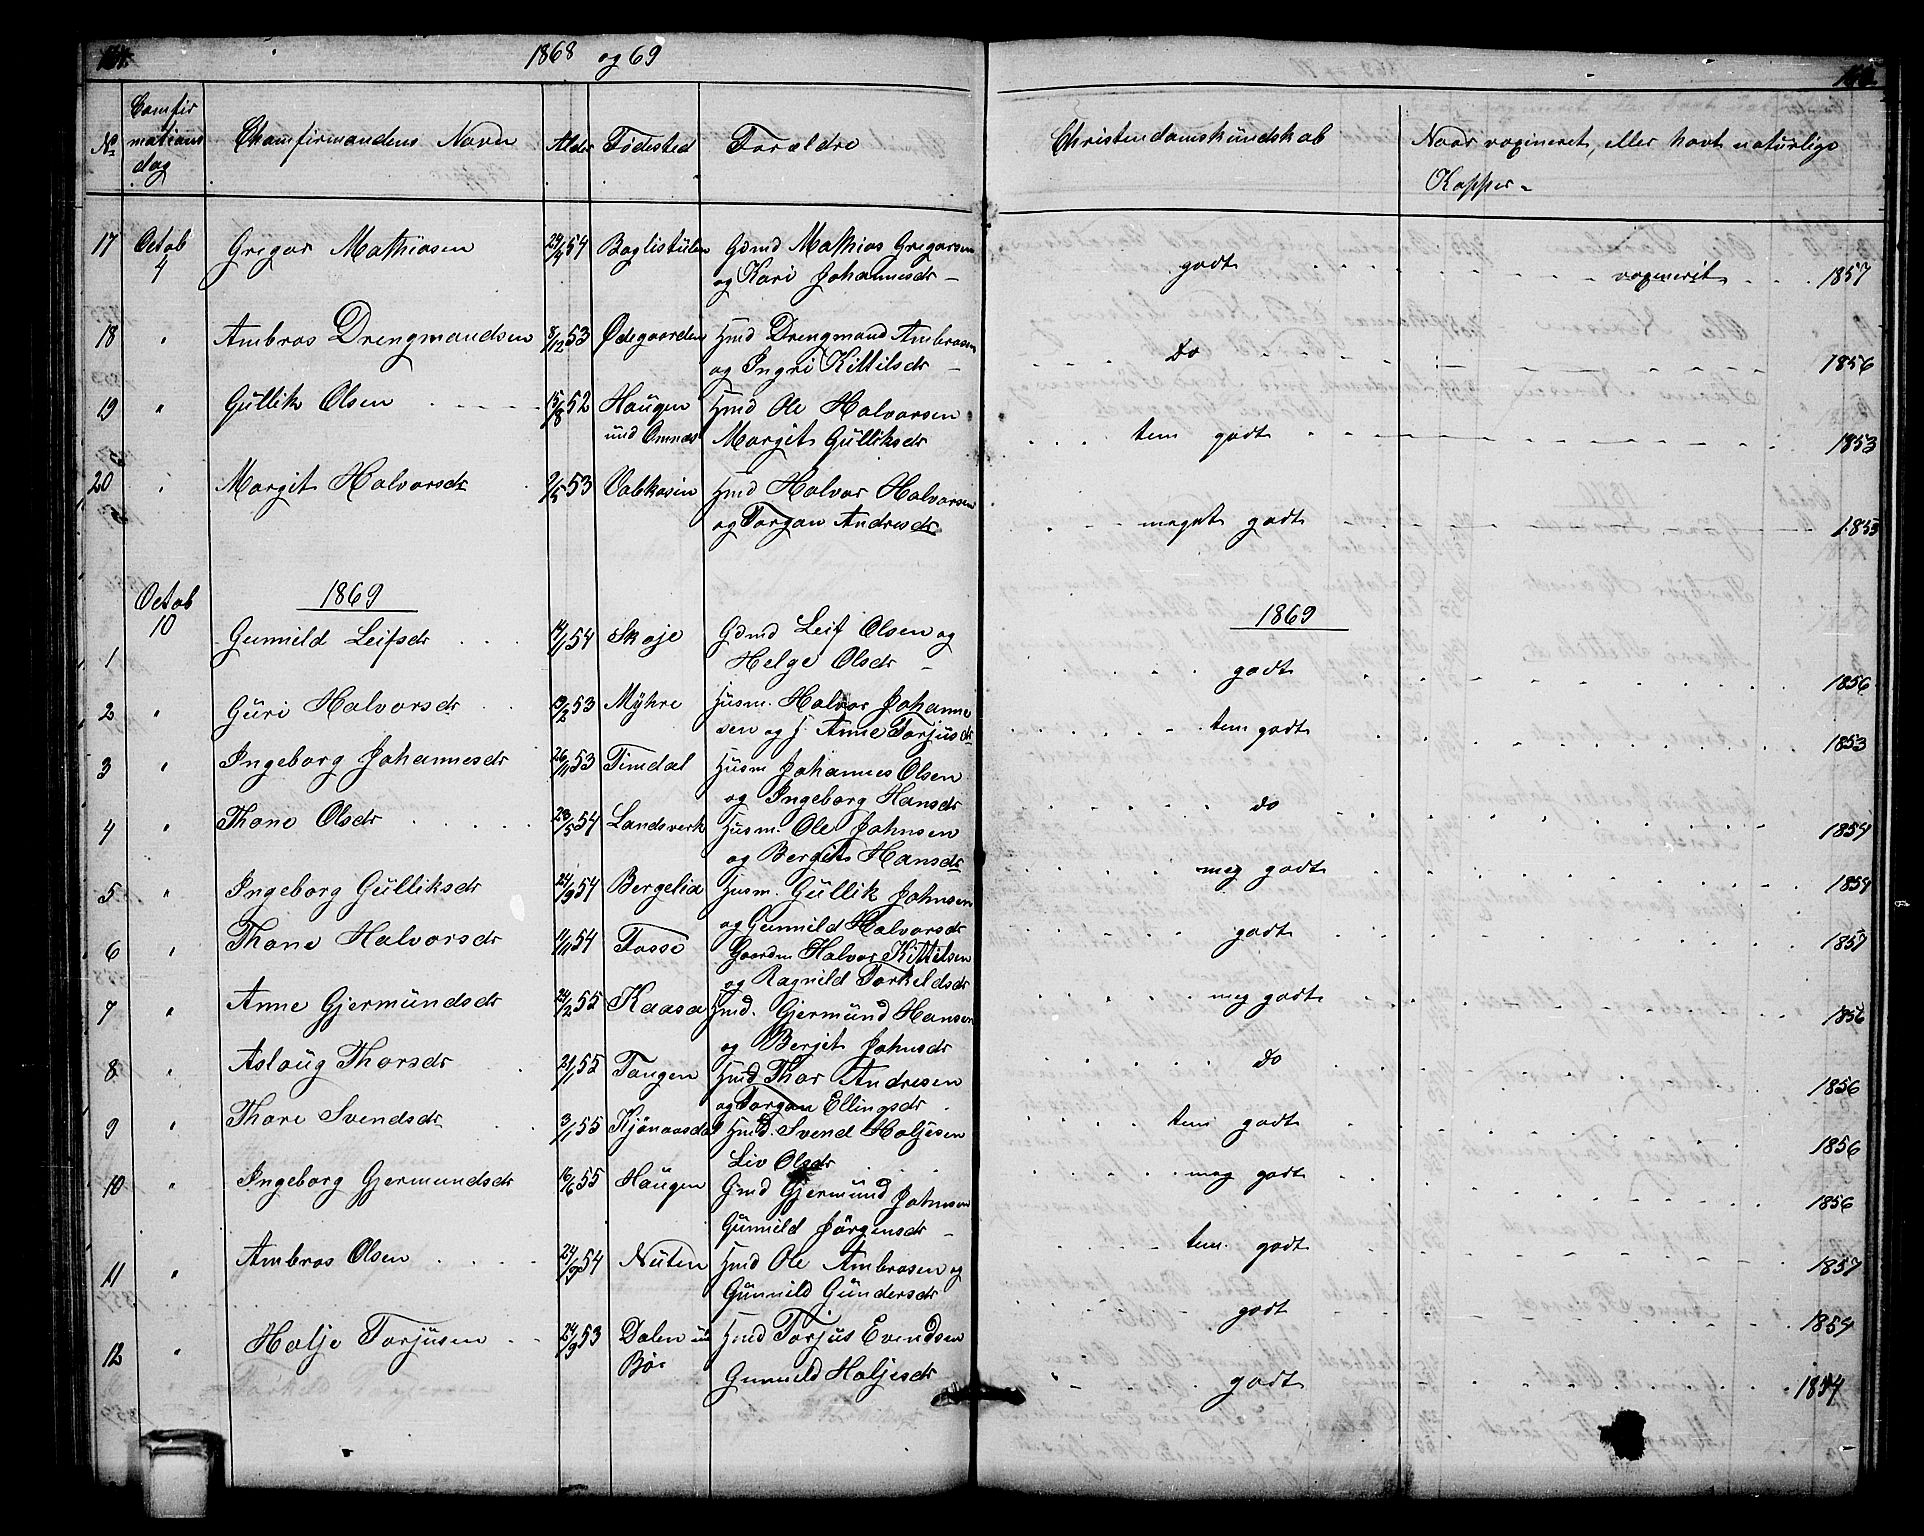 1868 og 69
No Comfirmations dag Chomfirmandens Navn Alder Fødested Forældre Christendomskundskab Naar vaxineret, eller havt naturlige
Kopper
17 Octob 4 Gregar Mathiasen 29/4 54 Baglistulen Gdmd Mathias Gregarsen
og Kari Johannesdr godt vaxinerit 1857
18 " Ambros Drengmandsen 8/12 53 Ødegaarden Hmd Drengmand Ambrosen
og Ingri Kittilsdr Do 1856
19 " Gullik Olsen 15/8 52 Haugen Hmd Ole Halvorsen
und Omnæs Margit Gulliksdr tem godt 1853
20 " Margit Halvorsdr 9/5 53 Valskasin Hmd Halvor Halvorsen
og Torgon Andresdr meget godt 1853
Octob 10 1869 1869
1 Gunnild Leifsdr 14/1 54 Skoje Gdmd Leif Olsen og
Helge Olsdr godt 1856
2 " Guri Halvorsdr 13/2 53 Myhre Husm. Halvor Johanne
sen og H. Anne Torjusdr tem godt 1853
3 " Ingeborg Johannesdr 26/11 53 Timdal Husm Johannes Olsen
og Ingeborg Hansdr do 1854
4 " Thone Olsdr 28/5 54 Landsverk Husm. Ole Johnsen
og Bergit Hansdr meg godt 1854
5 " Ingeborg Gulliksdr 24/9 54 Bergelia Husm. Gullik Johnsen
og Gunnild Halvorsdr godt 1857
6 " Thone Halvorsdr 11/11 54 Fosse Gaardm Halvor Kittilsen
og Ragnild Torkeldsdr meg godt 1856
7 " Anne Gjermundsdr 24/2 55 Kaasa Hmd. Gjermund Hansen
og Berjet Johnsdr do 1856
8 " Aslaug Thorsdr 21/1 55 Tangen Hmd Thor Andresen
og Torgon Ellingsdr tem godt 1856
9 " Thore Svendsdr 3/1 55 Kjønaasdal Hmd. Svend Holjesen
Liv Olsdr meg godt 1856
10 " Ingeborg Gjermundsdr 16/6 55 Haugen Gmd Gjermund Johnsen
Gunnild Jörgensdr tem. godt 1857
11 " Ambros Olsen 24/9 54 Nuten Hmd Ole Ambrosen og
Gunnild Gundersdr godt 1854
12 " Holje Torjusen 24/9 53 Dalen und Hmd Torjus Evendsen
Bø Gunnild Holjesdr godt 1854